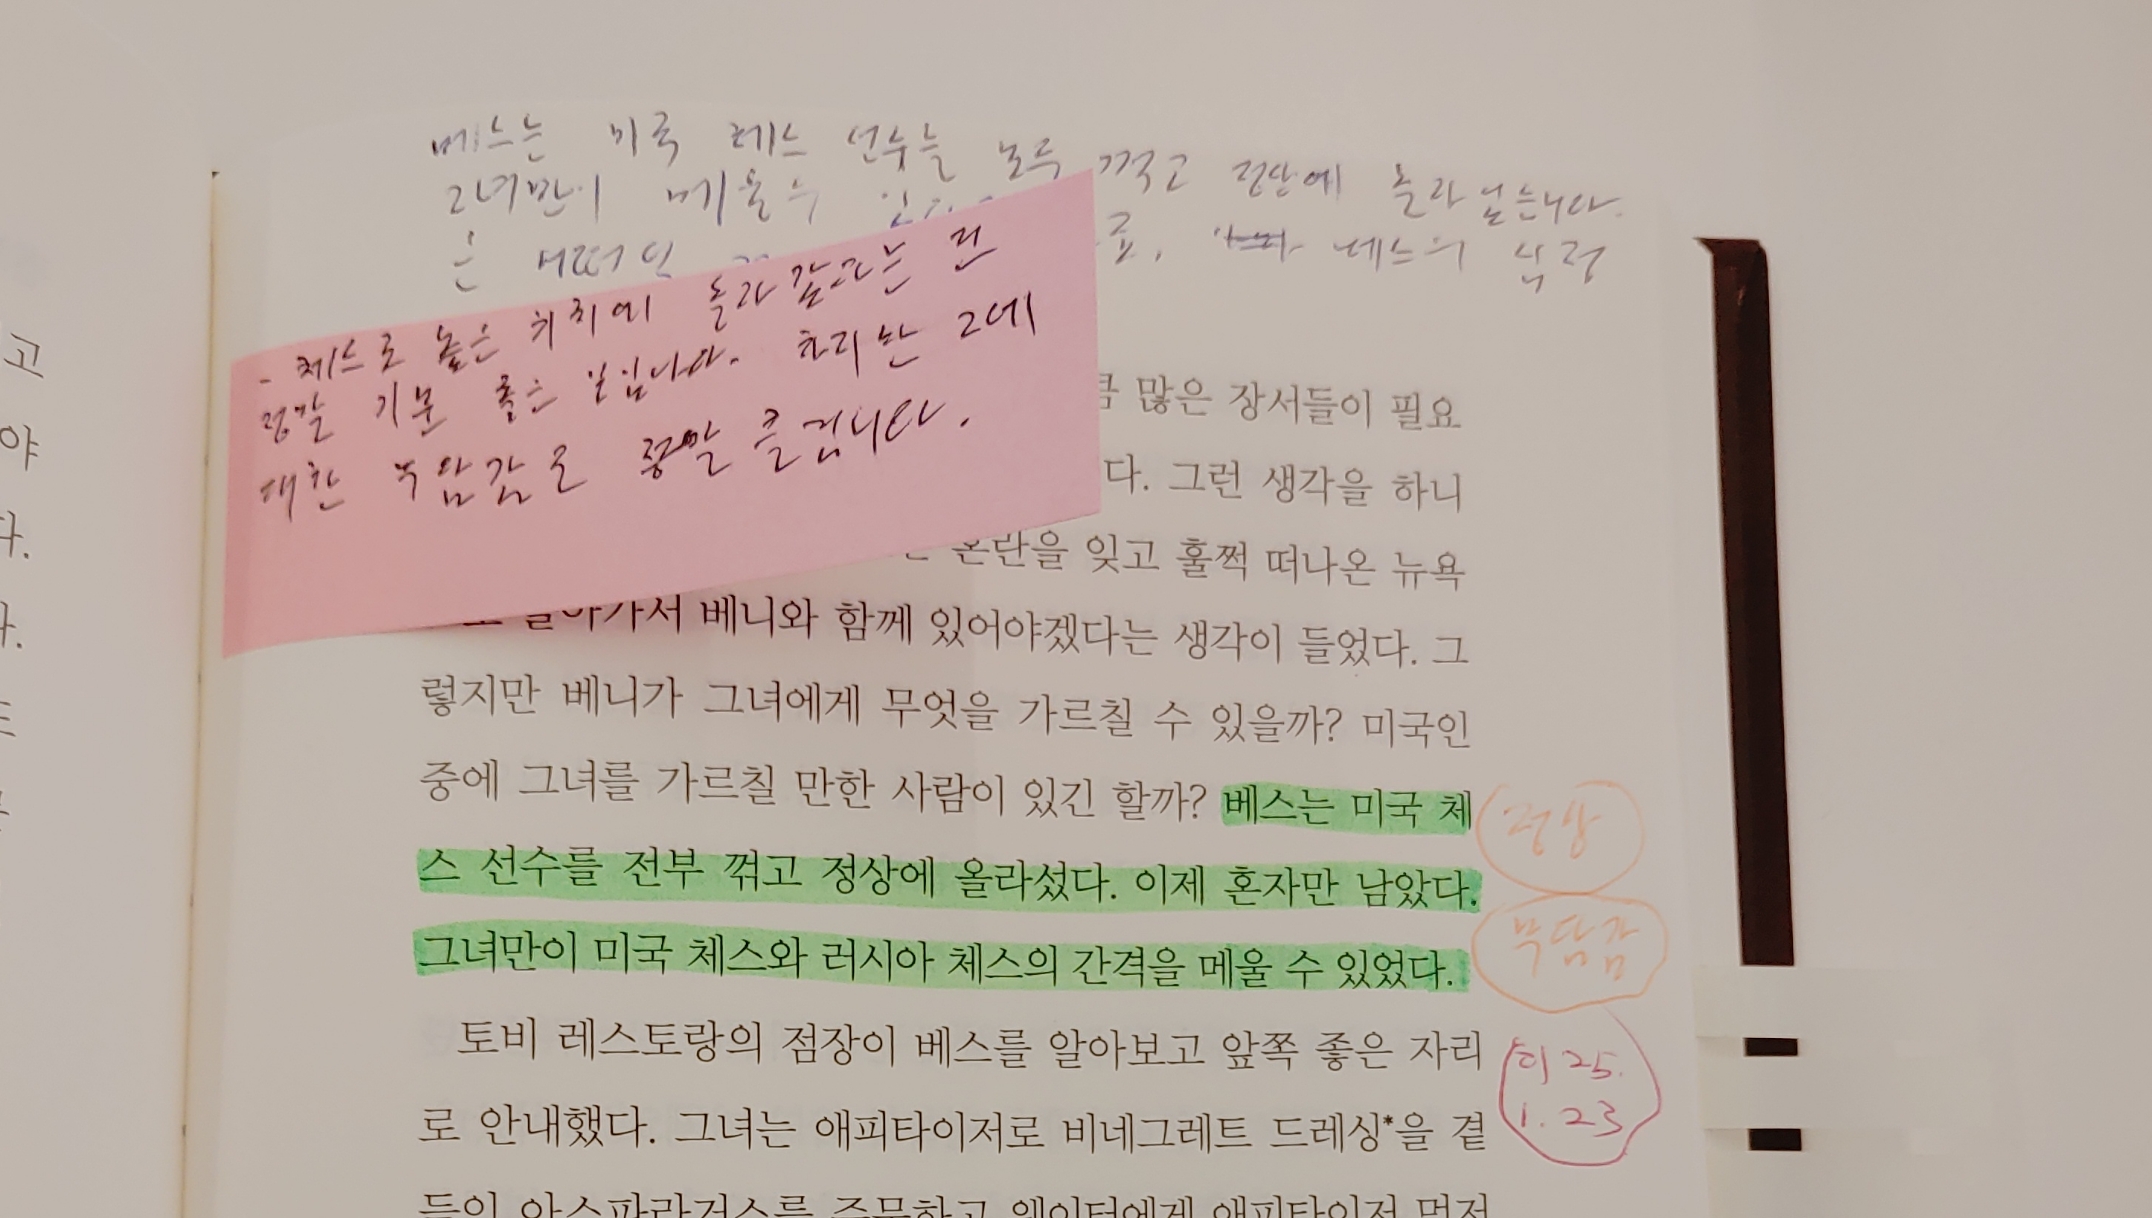 베스는 미국 체스 선수를 모두 꺾고 정상에 올라섰습니다.
그녀만이 메울 수
는 어떠한 베스의 심정
- 체스로 높은 위치에 올라갔다는 건
정말 기분 좋은 일입니다. 하지만 그에
대한 부담감도 정말 클겁니다.
고
야
다.
많은 장서들이 필요
다. 그런 생각을 하니
혼란을 잊고 훌쩍 떠나온 뉴욕
돌아가서 베니와 함께 있어야겠다는 생각이 들었다. 그
렇지만 베니가 그녀에게 무엇을 가르칠 수 있을까? 미국인
중에 그녀를 가르칠 만한 사람이 있긴 할까? 베스는 미국 체
스 선수를 전부 꺾고 정상에 올라섰다. 이제 혼자만 남았다.
그녀만이 미국 체스와 러시아 체스의 간격을 메울 수 있었다.
정상
부담감
25.
1. 23
토비 레스토랑의 점장이 베스를 알아보고 앞쪽 좋은 자리
로 안내했다. 그녀는 애피타이저로 비네그레트 드레싱*을 곁
들인 아스파라거스를 주문하고 웨이터에게 애피타이저 먼저